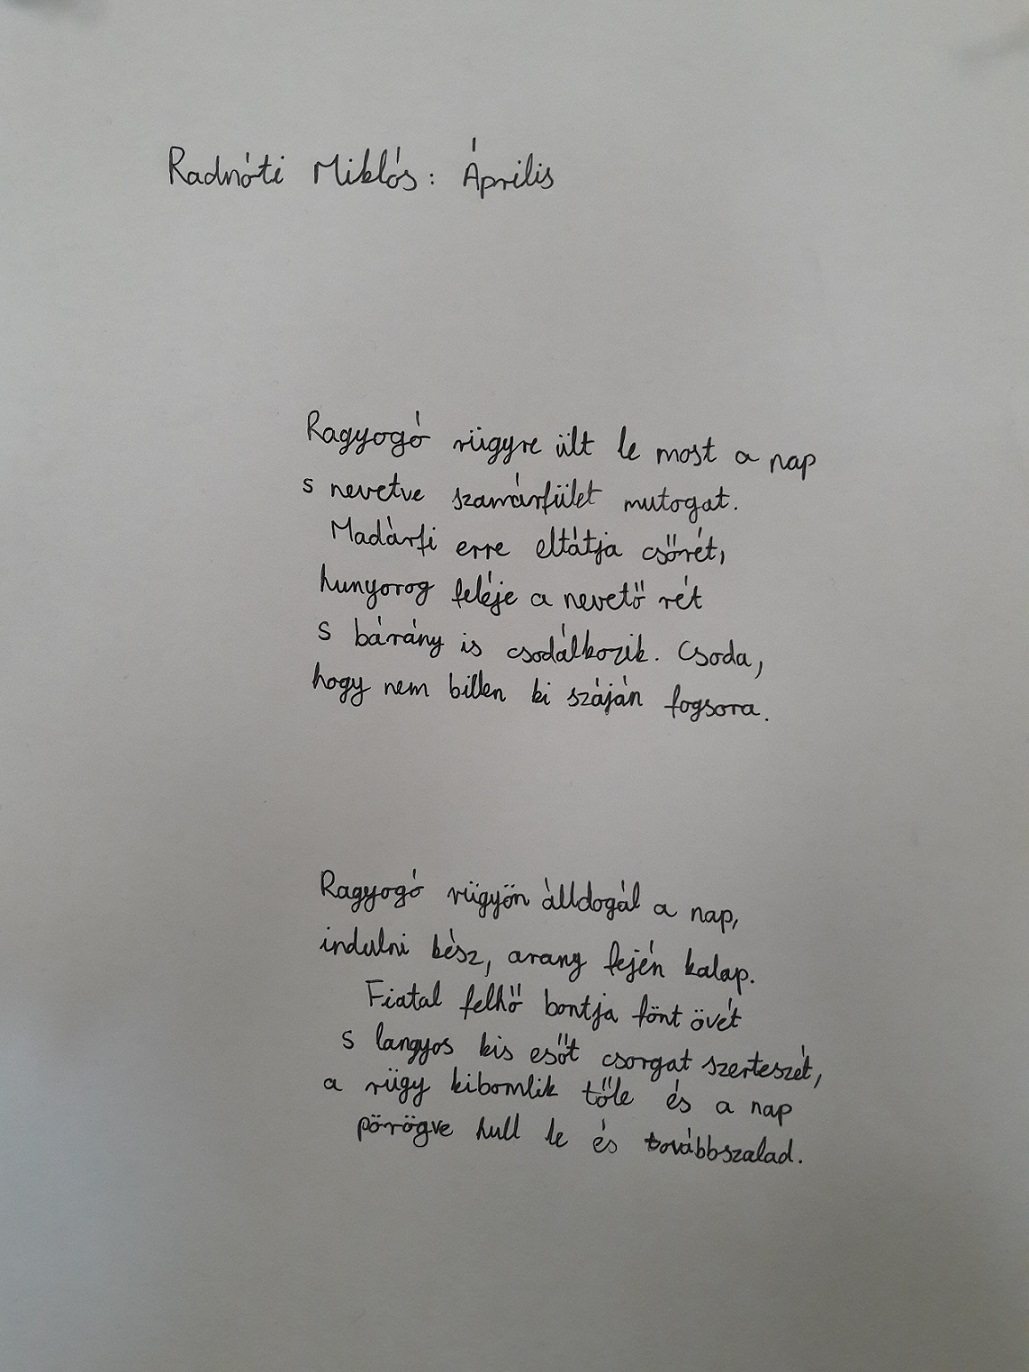 Radnóti Miklós: Április
Ragyogó rügyre ült le most a nap
s nevetve szamárfület mutogat.
Madárfi erre eltátja csőrét,
hunyorog feléje a nevető rét
s bárány is csodálkozik. Csoda,
hogy nem billen ki száján fogsora.
Ragyogó rügyön álldogál a nap,
indulni kész, arany fején kalap.
Fiatal felhő bontja fönt övét
s langyos kis esőt csorgat szerteszét,
a rügy kibomlik tőle és a nap
pörögve hull le és továbbszalad.